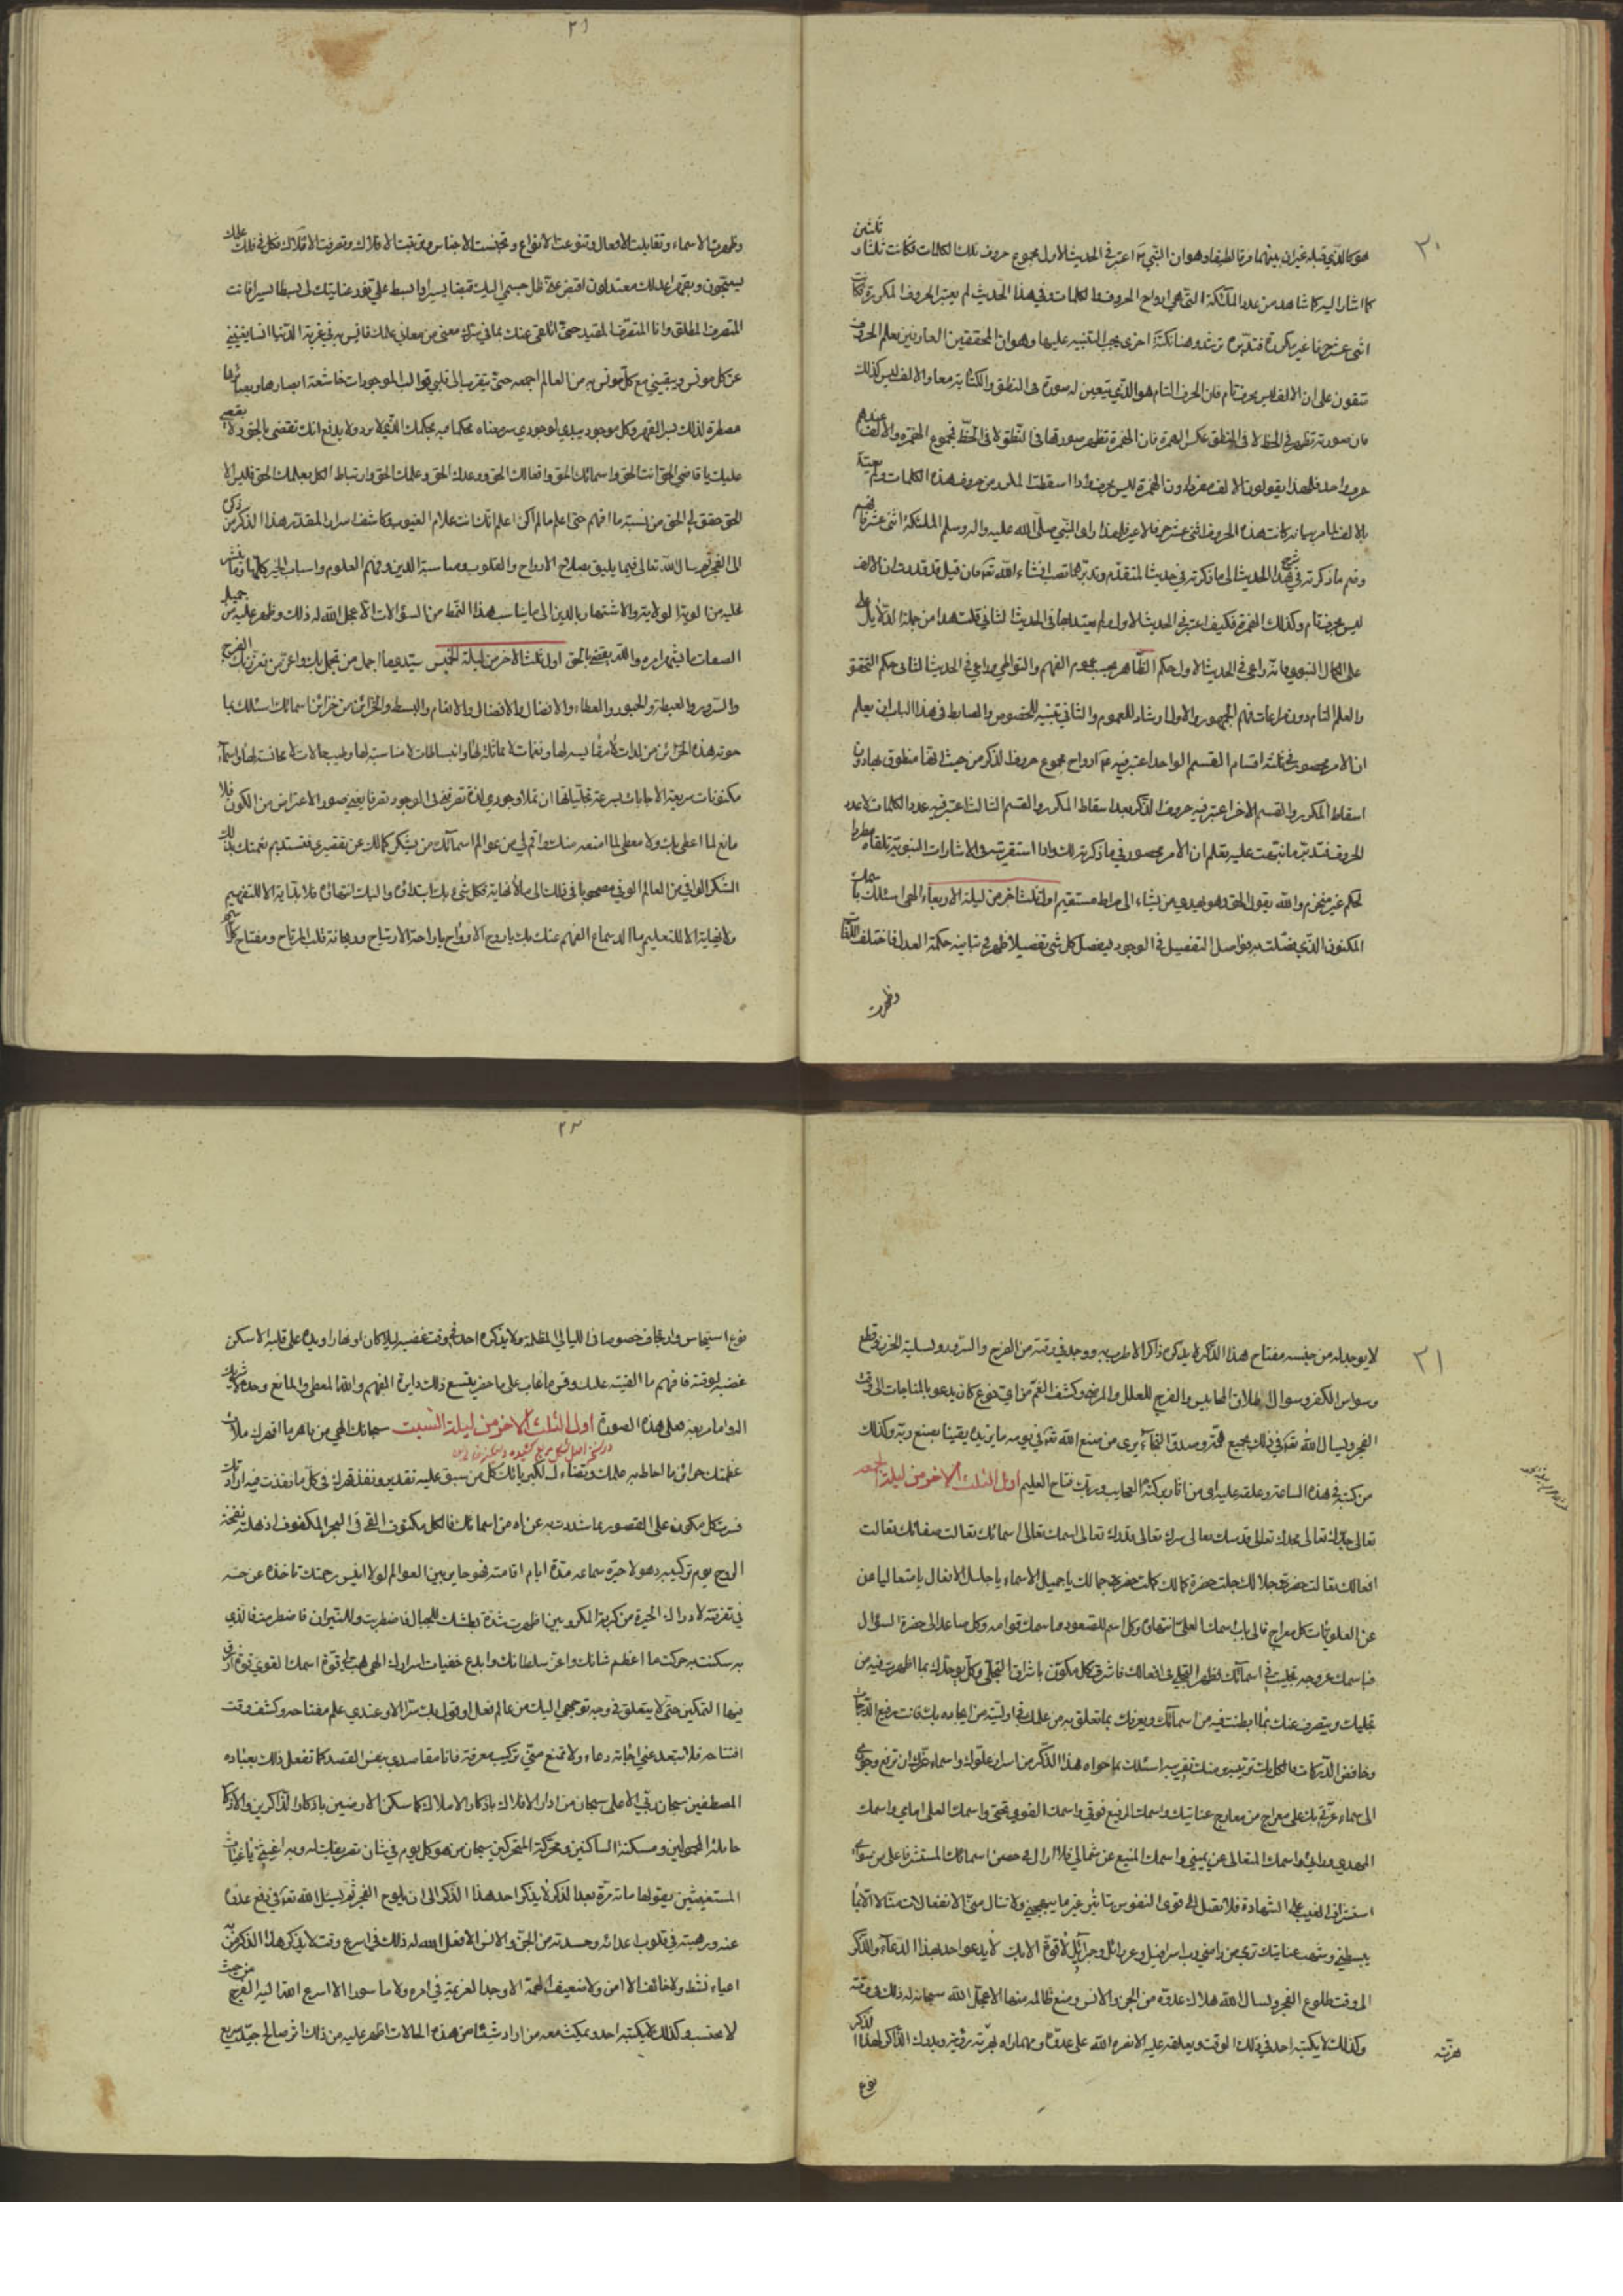 ٣٠
ثلثين
هو كالذي قبله غير ان بينهما فرقا لطيفا وهو ان النبي اعتبر في الحديث الاول مجموع حروف تلك الكلمات فكانت ثلثا و
كما اشار اليه كما شاهد من عدد الملئكة التي هي ارواح الحروف والكلمات وفي هذا الحديث لم يعتبر الحروف المكررة فكانت
اثنى عشر حرفا غير مكررة فتدبره ترشد وهنا نكتة اخرى يجب التنبيه عليها وهو ان المحققين العارفين بعلم الحروف
متفقون على ان الالف ليس بحرف تام فان الحرف التام هو الذي يتعين له صورة في النطق والكتابة معا والالف ليس كذلك
فان صورته تظهر في الخط لا في النطق عكس الهمزة فان الهمزة تظهر صورتها في النطق لا في الخط فمجموع الهمزة والالف عندهم
حرف واحد فلهذا يقولون الالف مفردا دون الهمزة ليس بحرف واذا اسقطت المكرر من حروف هذه الكلمات ولم يعتبر
بالالف لما مر بيانه كانت هذه الحروف اثنى عشر حرفا لا غير فلهذا راى النبي صلى الله عليه واله وسلم الملئكة اثنى عشر فافهم
وضم ما ذكرته في شرح هذا الحديث الى ما ذكرته في حديث المتقدم وتدبرهما تصب انشاء الله تعه فان قيل قد قررت ان الالف
ليس بحرف تام وكذلك الهمزة فكيف اعتبر في الحديث الاول ولم يعتد بها في الحديث الثاني قلت هذا من جملة الدلايل على
على الكمال النبوي فانه راعى في الحديث الاول حكم الظاهر بحسب عموم الفهم والتواطي وراعى في الحديث الثاني حكم التحقق
والعلم التام دون مراعات فهم الجمهور والاول ارشاد للعموم والثاني تنبيه للخصوص والضابط في هذا الباب ان يعلم
ان الامر محصور في ثلثة اقسام القسم الواحد اعتبر فيه ارواح مجموع حروف الذكر من حيث انها منطوق بها دون
اسقاط المكرر والقسم الاخر اعتبر فيه حروف الذكر بعد اسقاط المكرر والقسم الثالث اعتبر فيه عدد الكلمات لا عدد
الحروف فتدبر ما نبهت عليه تعلم ان الامر محصور في ما ذكرته لك واذا استقريت في الاشارات النبوية تلقاه مطردا
لحكم غير منخرم والله يقول الحق وهو يهدي من يشاء الى صراط مستقيم اول ثلث اخر من ليلة الاربعاء الهى اسئلك باسمك
المكنون الذي فصلت به فواصل التفصيل في الوجود ليفصل كل شى تفصيلا ظهر في تباينه حكمة العدل فاختلف
وظهرت
٣١
وظهرت الاسماء وتقابلت الافعال وتنوعت الانواع وتجنست الاجناس وترتبت الافلاك وتصرفت الاملاك فكل في فلك
يسبحون وبقهر اعدلك معتدلون اقبض عنى ظل جسمي اليك قبضا يسيرا وابسط على نور عنايتك لى بسطا يسيرا فانت
المتصرف المطلق وانا المتصرف المقيد حتى اتلقى عنك بما في سرك معنى من معاني علمك فانس به في غربة الدنيا انسا يغنيني
عن كل مونس ويبقيني مع كل مونس به من العالم اجمعه حتى يتقرب الى قلبي قوالب الموجودات خاشعة ابصارها وبصائرها
مضطرة لذلك سر القهر وكل موجود يبدي لوجودي سر معناه محكما فيه بحكمك الذي لا يرد ولا يدفع انك تقضى بالحق ولا يقضى
عليك يا قاضي الحق انت الحق واسمائك الحق وافعالك الحق ووعدك الحق وعلمك الحق وارتباط الكل بعلمك الحق فليس الا
الحق حقق لي الحق من نسبة ما افهم حتى اعلم ما لم اكن اعلم انك انت علام الغيوب وكاشف اسرار المقدر هذا الذكر من ذكره
الى الفجر ثم يسال الله تعالى فيما يليق بصلاح الارواح والقلوب ومناسبة الدين وفهم العلوم واسباب الخير كلها وما ينشر
عليه من الوية الولاية والاشتهار بالدين الى ما يناسب هذا النمط من السؤالات الا عجل الله له ذلك وظهر عليه من جميل
الصفات ما يشهر امره والله يقضى بالحق اول ثلث الاخر من ليلة الخميس سيدي ما اجمل من تجمل بك واعز من تعزز بك الفرح
والسرور والغبطة والحبور والعطاء والافضال والافضال والانعام والبسط والخزائن من خزائن اسمائك اسئلك بما
حوته هذه الخزائن من لذات لا مقايسه لها ونغمات لا مماثلة لها وانبساطات لا مناسبة لها وطيب حالات لا مجانسة لها باسماء
مكنونات سريعة الاجابات لسرعة تجلياتها ان تملأ وجودي لذة تصرفني في الوجود تصرفا يفنى صور الاعتراض من الكون فلا
مانع لما اعطى بك ولا معطى لما امتنعه منك واقم لي من عوالم اسمائك من يشكر كمالك عن تقصيري فتستديم نعمتك بذلك
الشكر الوافي من العالم الوفي مصحوبا في ذلك الى ما لا نهاية فكل شيء بك ابتداؤه واليك انتهاؤه فلا بداية الا للتفهيم
ولا نهاية الا للتعليم ما الذ سماع الفهم عنك بك يا روح الارواح يا راحة الارتياح وريحانة قلب المرتاح ومفتاح كل
٣١
لا يوجد له من جنسه مفتاح هذا الذكر لا يذكره ذاكر الا طرب به ووجد في وقته من الفرح والسرور وتسلية الحزن وقطع
وسواس الكفر وسوال اطلاق المحابيس والفرج للعلل والمرضى وكشف الغم من اى نوع كان يدعو بالمناجات الى وقت
الفجر ويسال الله تعه في ذلك بجميع همة وصدق التجاء يرى من صنع الله تعه في يومه ما يزيده يقينا بصنع ربه وكذلك
من كتبه في هذه الساعة وعلقه عليه راى من اثار بركته العجايب وربك فتاح العليم اول الثلث الاخر من ليلة الجمعه
تعالى جدك تعالى مجدك تعالى قدسك تعالى سرك تعالى مقدرك تعالى اسمك تعالى اسمائك تعالت صفاتك تعالت
افعالك تعالت حضرة جلالك جلت حضرة كمالك كملت حضرة جمالك يا جميل الاسماء يا جليل الافعال يا متعاليا عن
عن العلويات كل معراج فالى باب اسمك العلى انتهاؤه وكل اسم للصعود فاسمك قوامه وكل صاعد الى حضرة السؤال
فباسمك عروجه تجليت في اسمائك فظهر التجلي في افعالك فاشرق كل مكون باشراق التجلى وكل يوحدك بما اظهرت فيه من
تجليات ويتصرف عنك بما ابطنت فيه من اسمائك ويعرفك بما تعلق به من علمك في اولية من ايجاده بك فانت رفيع الدرجات
وخافض الدركات فالكل بك ترتيبه ومنك تقريبه اسئلك بما حواه هذا الذكر من اسرار علوك واسماء عزك ان ترفع وجودي
الى سماء عزتي بك على معراج من معارج عنايتك واسمك الرفيع فوقي واسمك القوي تحتي واسمك العلى امامي واسمك
المهدي ورائي واسمك المتعالى عن يميني واسمك المنيع عن شمالي فلا ازال في حصن اسمائك المستشرفا على من سوائى
استنزل الغيب على الشهادة فلا تصل الى قوى النفوس بتاثير غير ما يبهجني ولا تنال منى الانفعالات منالا الا بما
يبسطني وشهب عنايتك ترمى من رامني رب اسرافيل وعزرائيل وجبرائيل لا قوة الا بك لا يدعو احد بهذا الدعاء والذكر
الى وقت طلوع الفجر ويسال الله هلاك عدوه من الجن والانس ومنع ظالمه منهما الا عجل الله سبحانه له ذلك في وقته
وكذلك لا يكتبه احد في ذلك الوقت ويعلقه عليه الا نصره الله على عدوه ومهما راه هزته رؤيته ويدرك الذاكر لهذا الذكر
هزته
نوع
٣٢
نوع استيحاش وارتجاف خصوصا في الليالي المظلمة ولا يذكره احد في وقت غضبه ليلا كان او نهارا ويده على قلبه الا سكن
غضبه لوقته فافهم ما القيته عليك وقس ما غاب على ما حضر يتسع ذلك دايرة الفهم والله المعطى والمانع وحده لا شريك
الدوام اربعة على هذه الصورة اول الثلث الاخر من ليلة السبت سبحانك الهي من باهر ما اقهرك ملأت
در نسخه اصل شكل مربع كشيده
عظمتك جوانب ما احاط به علمك وقضاءك لكبريائك كل من سبق عليه تقديره ونفذ قهرك في كل ما نفذت فيه ارادتك
فسر شكل مكون على القصور بما شددت به عن اه من اسمائك فالكل مكتوف القى في البحر المكفوف اذهلته نفخة
الروح يوم تركيبه وهو لا حيرة سماعه مدة ايام اقامته فهو حاير بين العوالم لولا انيس رحمتك تاخذه عن حسه
في تفرقته لادراك الحيرة من كربة المكروبين اظهرت شدة بطشك للجبال فاضطربت وللنيران فاضطرمت فالذي
به سكنت به حركت ما اعظم شانك واعز سلطانك وابدع خفيات اسرارك الهى هب لى قوة اسمك القوي قوة ارزق
فيها التمكين حتى لا يتعلق في وجه توجهي اليك من عالم فعل او قول بك سترا الا وعندي علم مفتاحه وكشف وقت
افتتاحه فلا تبعد عني اجابة دعاء ولا تمنع منى تركيب معرفة فانا مقاصدي بنفس القصد كما تفعل ذلك بعباده
المصطفين سبحان ربي الاعلى سبحان من ادار الافلاك باذكار الاملاك كما سكن الارضين باذكار الذاكرين والاذكار
حاملة المحمولين ومسكنة الساكنين ومحركة المتحركين سبحان من هو كل يوم في شان تصريفات له وبه اغثني يا غياث
المستغيثين يقولها مائة مرة بعد الذكر لا يذكر احد هذا الذكر الى ان يلوح الفجر ثم يسئل الله تعه في دفع عدو
عنه ورهبته في قلوب اعدائه وحسدته من الجن والانس الا فعل الله له ذلك في اسرع وقت لا يذكر هذا الذكر من به
اعياء نشط ولا خائف الا امن ولا ضعيف الهمة الا وجد العزيمة في امره ولا ماسورا الا اسرع الله اليه الفرج من حيث
لا يحتسب وكذلك لا يكتبه احد ويمكث معه من اراد شيئا من هذه الحالات الا ظهر عليه من ذلك اثر صالح جيد سريع